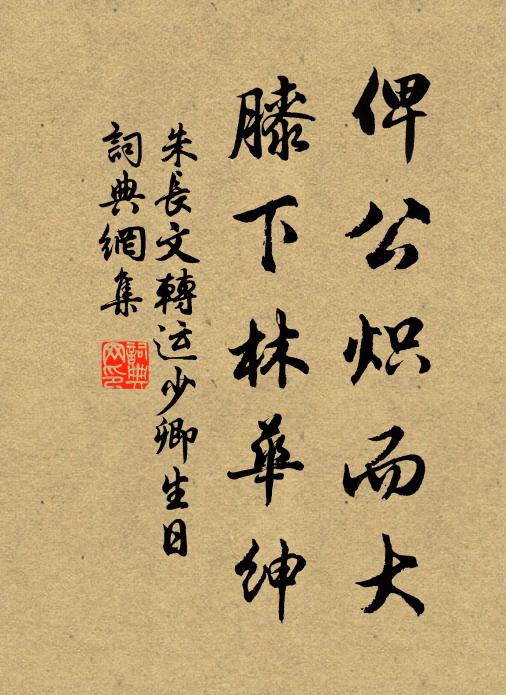 俾公炽而大
膝下林華紳
朱長文轉运少卿生日
詞典網集
詞典網印